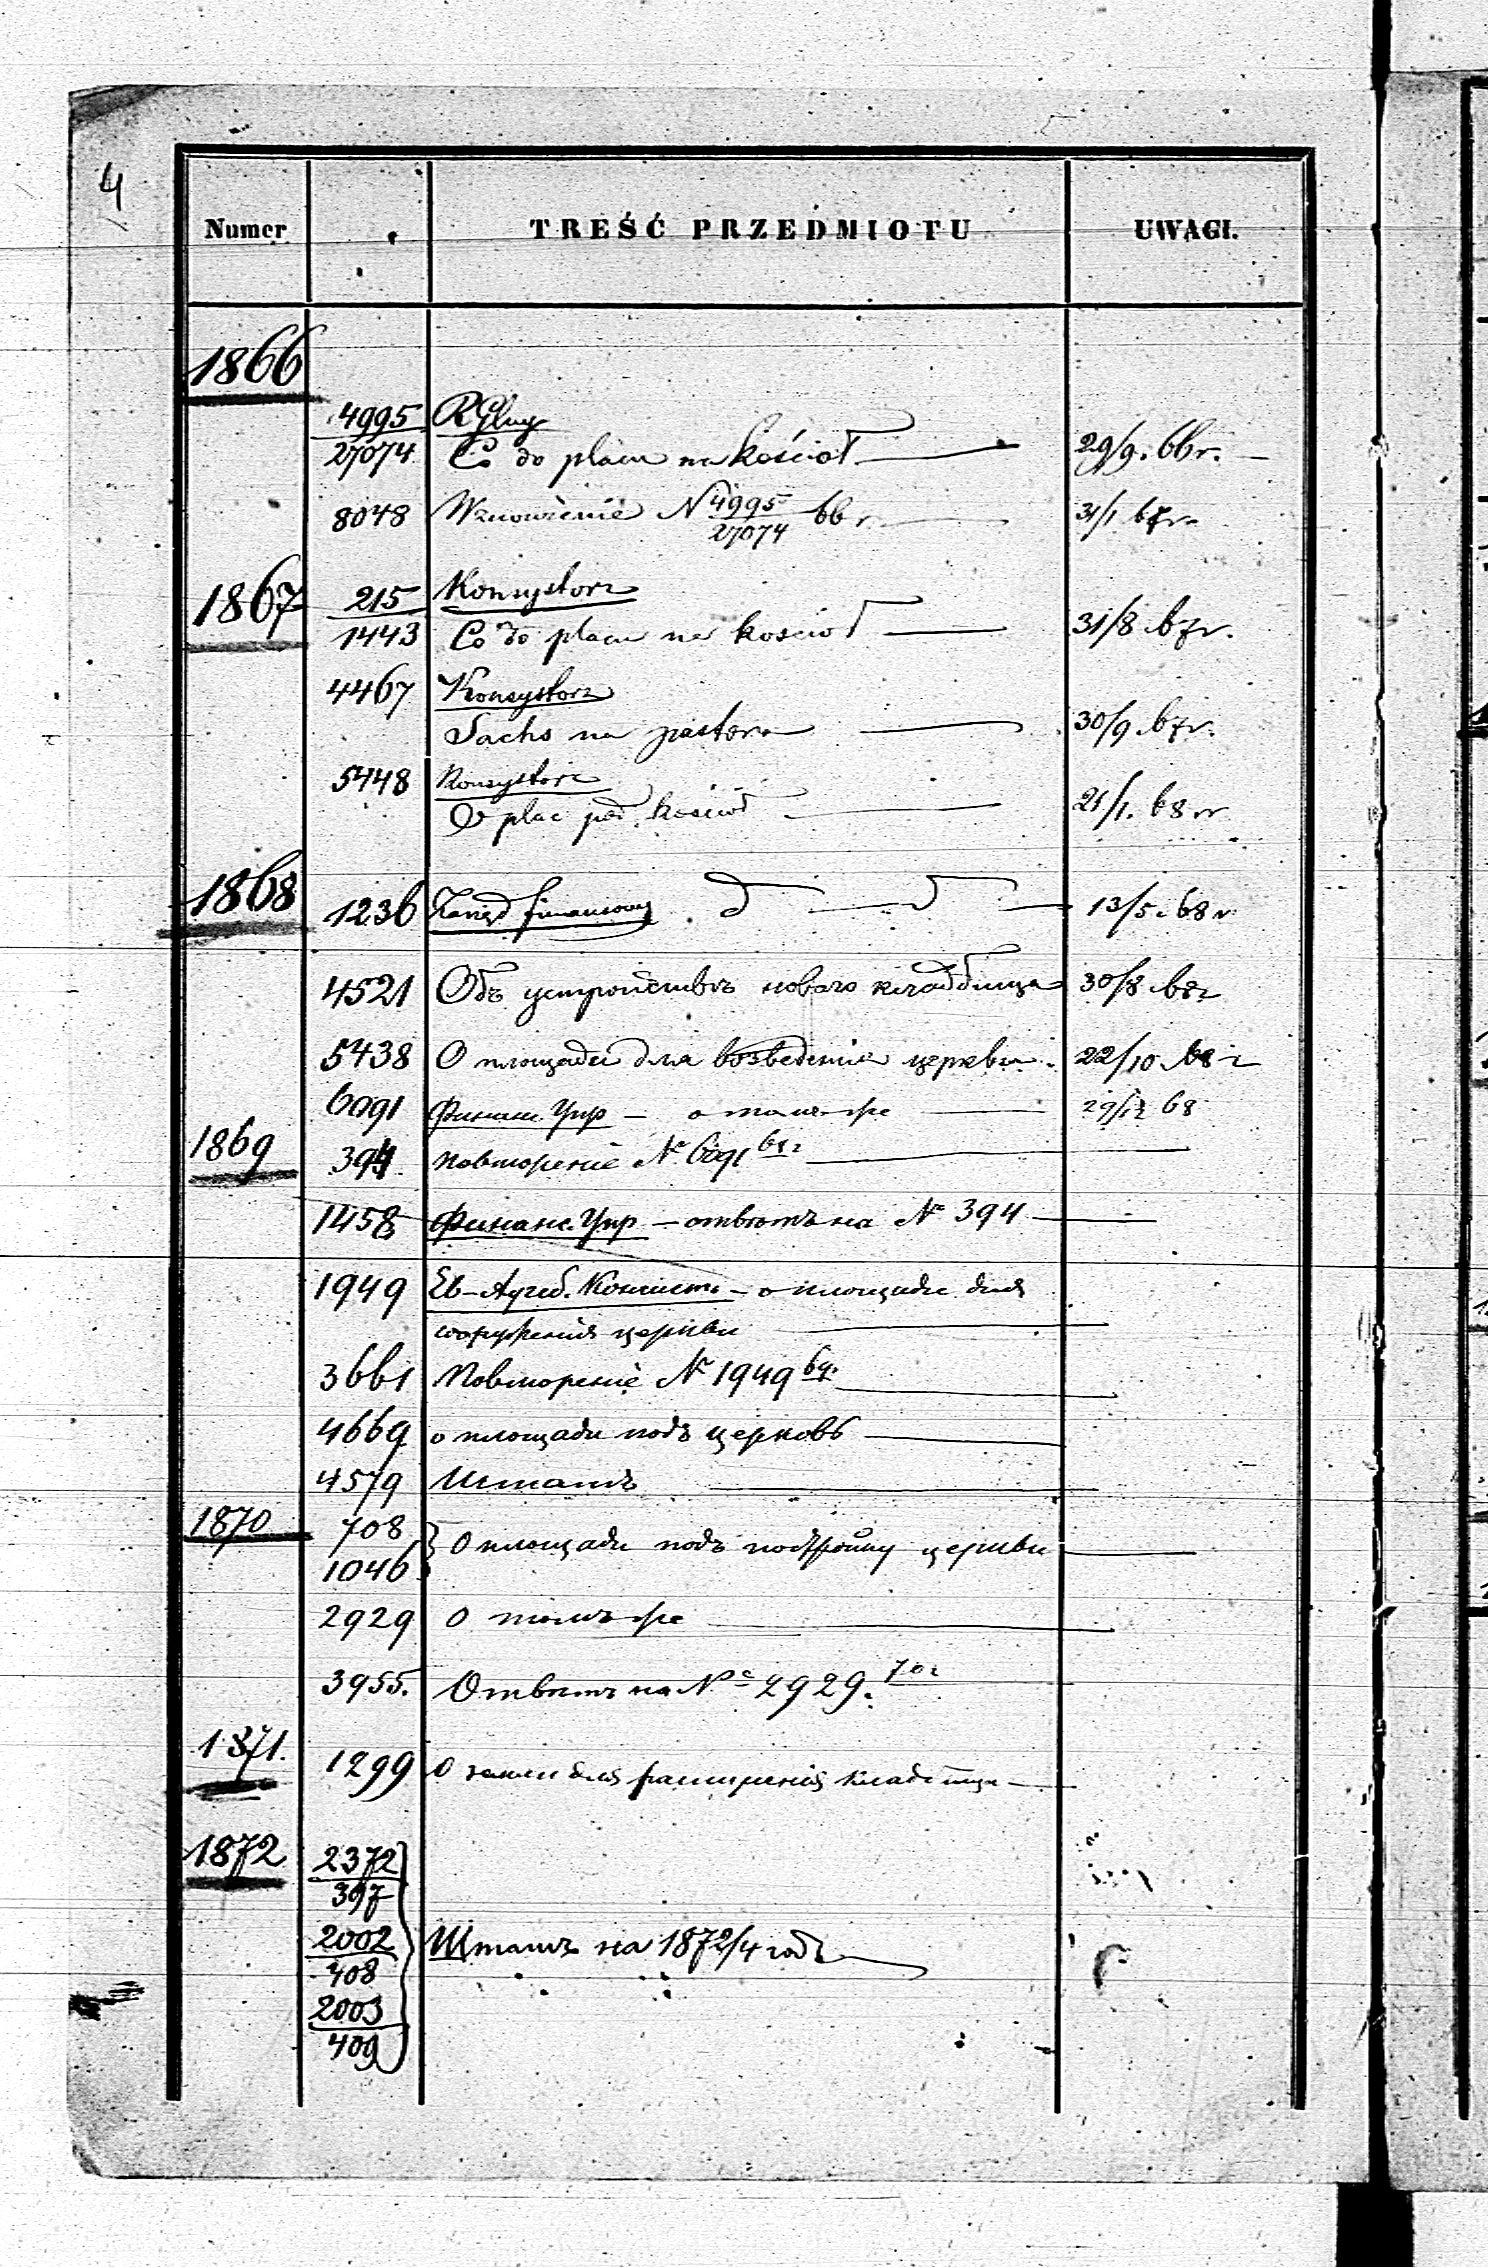 4
Numer TREŚĆ PRZEDMIOTU UWAGI.
1866
4995 RGlny
27074 Co do placu na kościoł 29/9. 66 r.
8048 Wznowienie N 4995/27074 66 r 31/1 67 r.
1867 215 Konsystorz
1443 Co do placu na kościoł 31/8 67 r.
4467 Konsystorz
Sachs na pastora 30/9 67 r.
5448 Konsystorz
O plac pod kościoł 21/1. 68 r
1868 1236 Zarząd finansowy d d 13/5. 68 r
4521 Объ устройствѣ новаго кладбища 30/8 68 г
5438 О площади для возведенія церкви 22/10 68 г
6091 Финанс. Упр — о томъ-же 29/12 68
1869 394 повтореніе № 6091 68 г
1458 Финанс. Упр — отвѣтъ на № 394
1949 Ев-Аугсб. Консист. — о площади для
сооруженія церкви
3661 Повтореніе № 1949 69.
4669 о площади подъ церковь
4579 Штатъ
1870 708
1046 } О площади подъ постройку церкви
2929 О томъ же
3955. Отвѣтъ на № 2929. 70 г
1871. 1299 О земли для расширенія кладбища
1872 2372
397
2002 Штатъ на 1872/4 годъ
408
2003
409